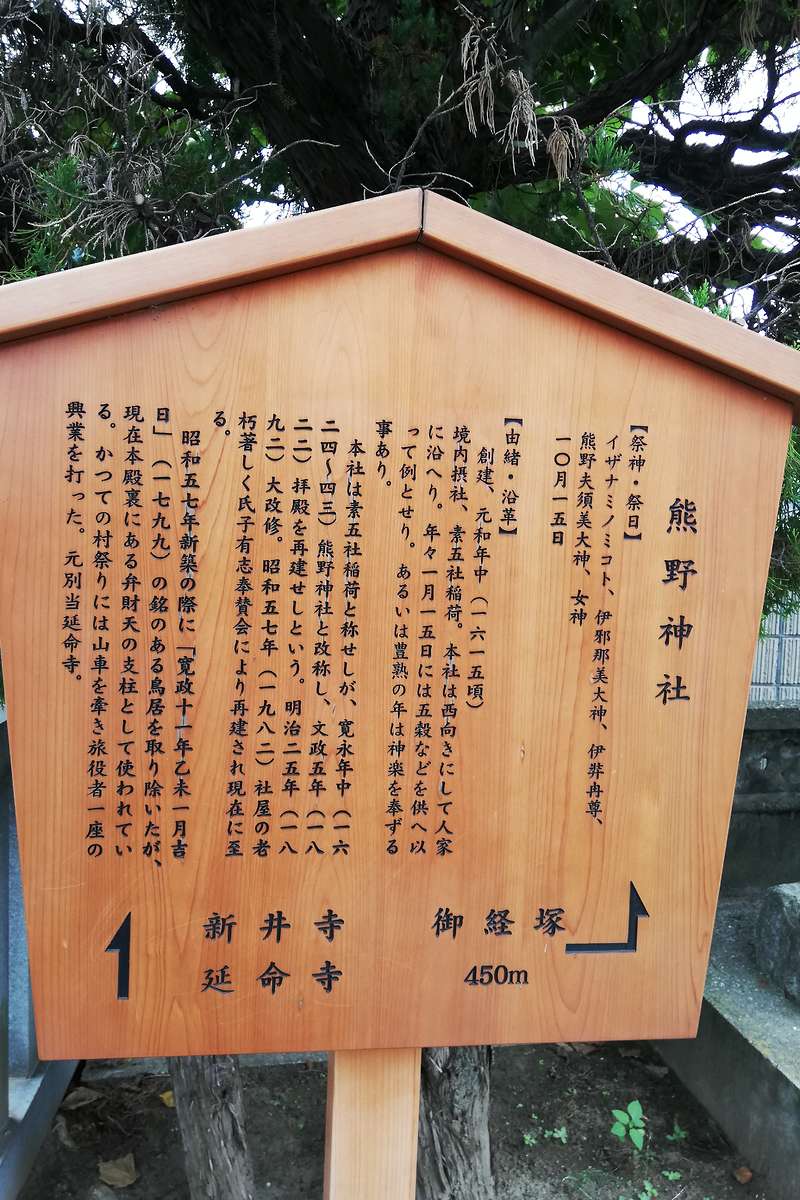 熊野神社
【祭神・祭日】
イザナミノミコト、伊邪那美大神、伊弉冉尊、
熊野夫須美大神、女神
一〇月一五日
【由緒・沿革】
創建、元和年中（一六一五頃）
境内摂社、素五社稲荷。本社は西向きにして人家
に沿へり。年々一月一五日には五穀などを供へ以
って例とせり。あるいは豊熟の年は神楽を奉ずる
事あり。
本社は素五社稲荷と称せしが、寛永年中（一六
二四〜四三）熊野神社と改称し、文政五年（一八
二二）拝殿を再建せしという。明治二五年（一八
九二）大改修。昭和五七年（一九八二）社屋の老
朽著しく氏子有志奉賛会により再建され現在に至
る。
昭和五七年新築の際に「寛政十一年乙未一月吉
日」（一七九九）の銘のある鳥居を取り除いたが、
現在本殿裏にある弁財天の支柱として使われてい
る。かつての村祭りには山車を牽き旅役者一座の
興業を打った。元別当延命寺。
御経塚
450m
新井寺
延命寺